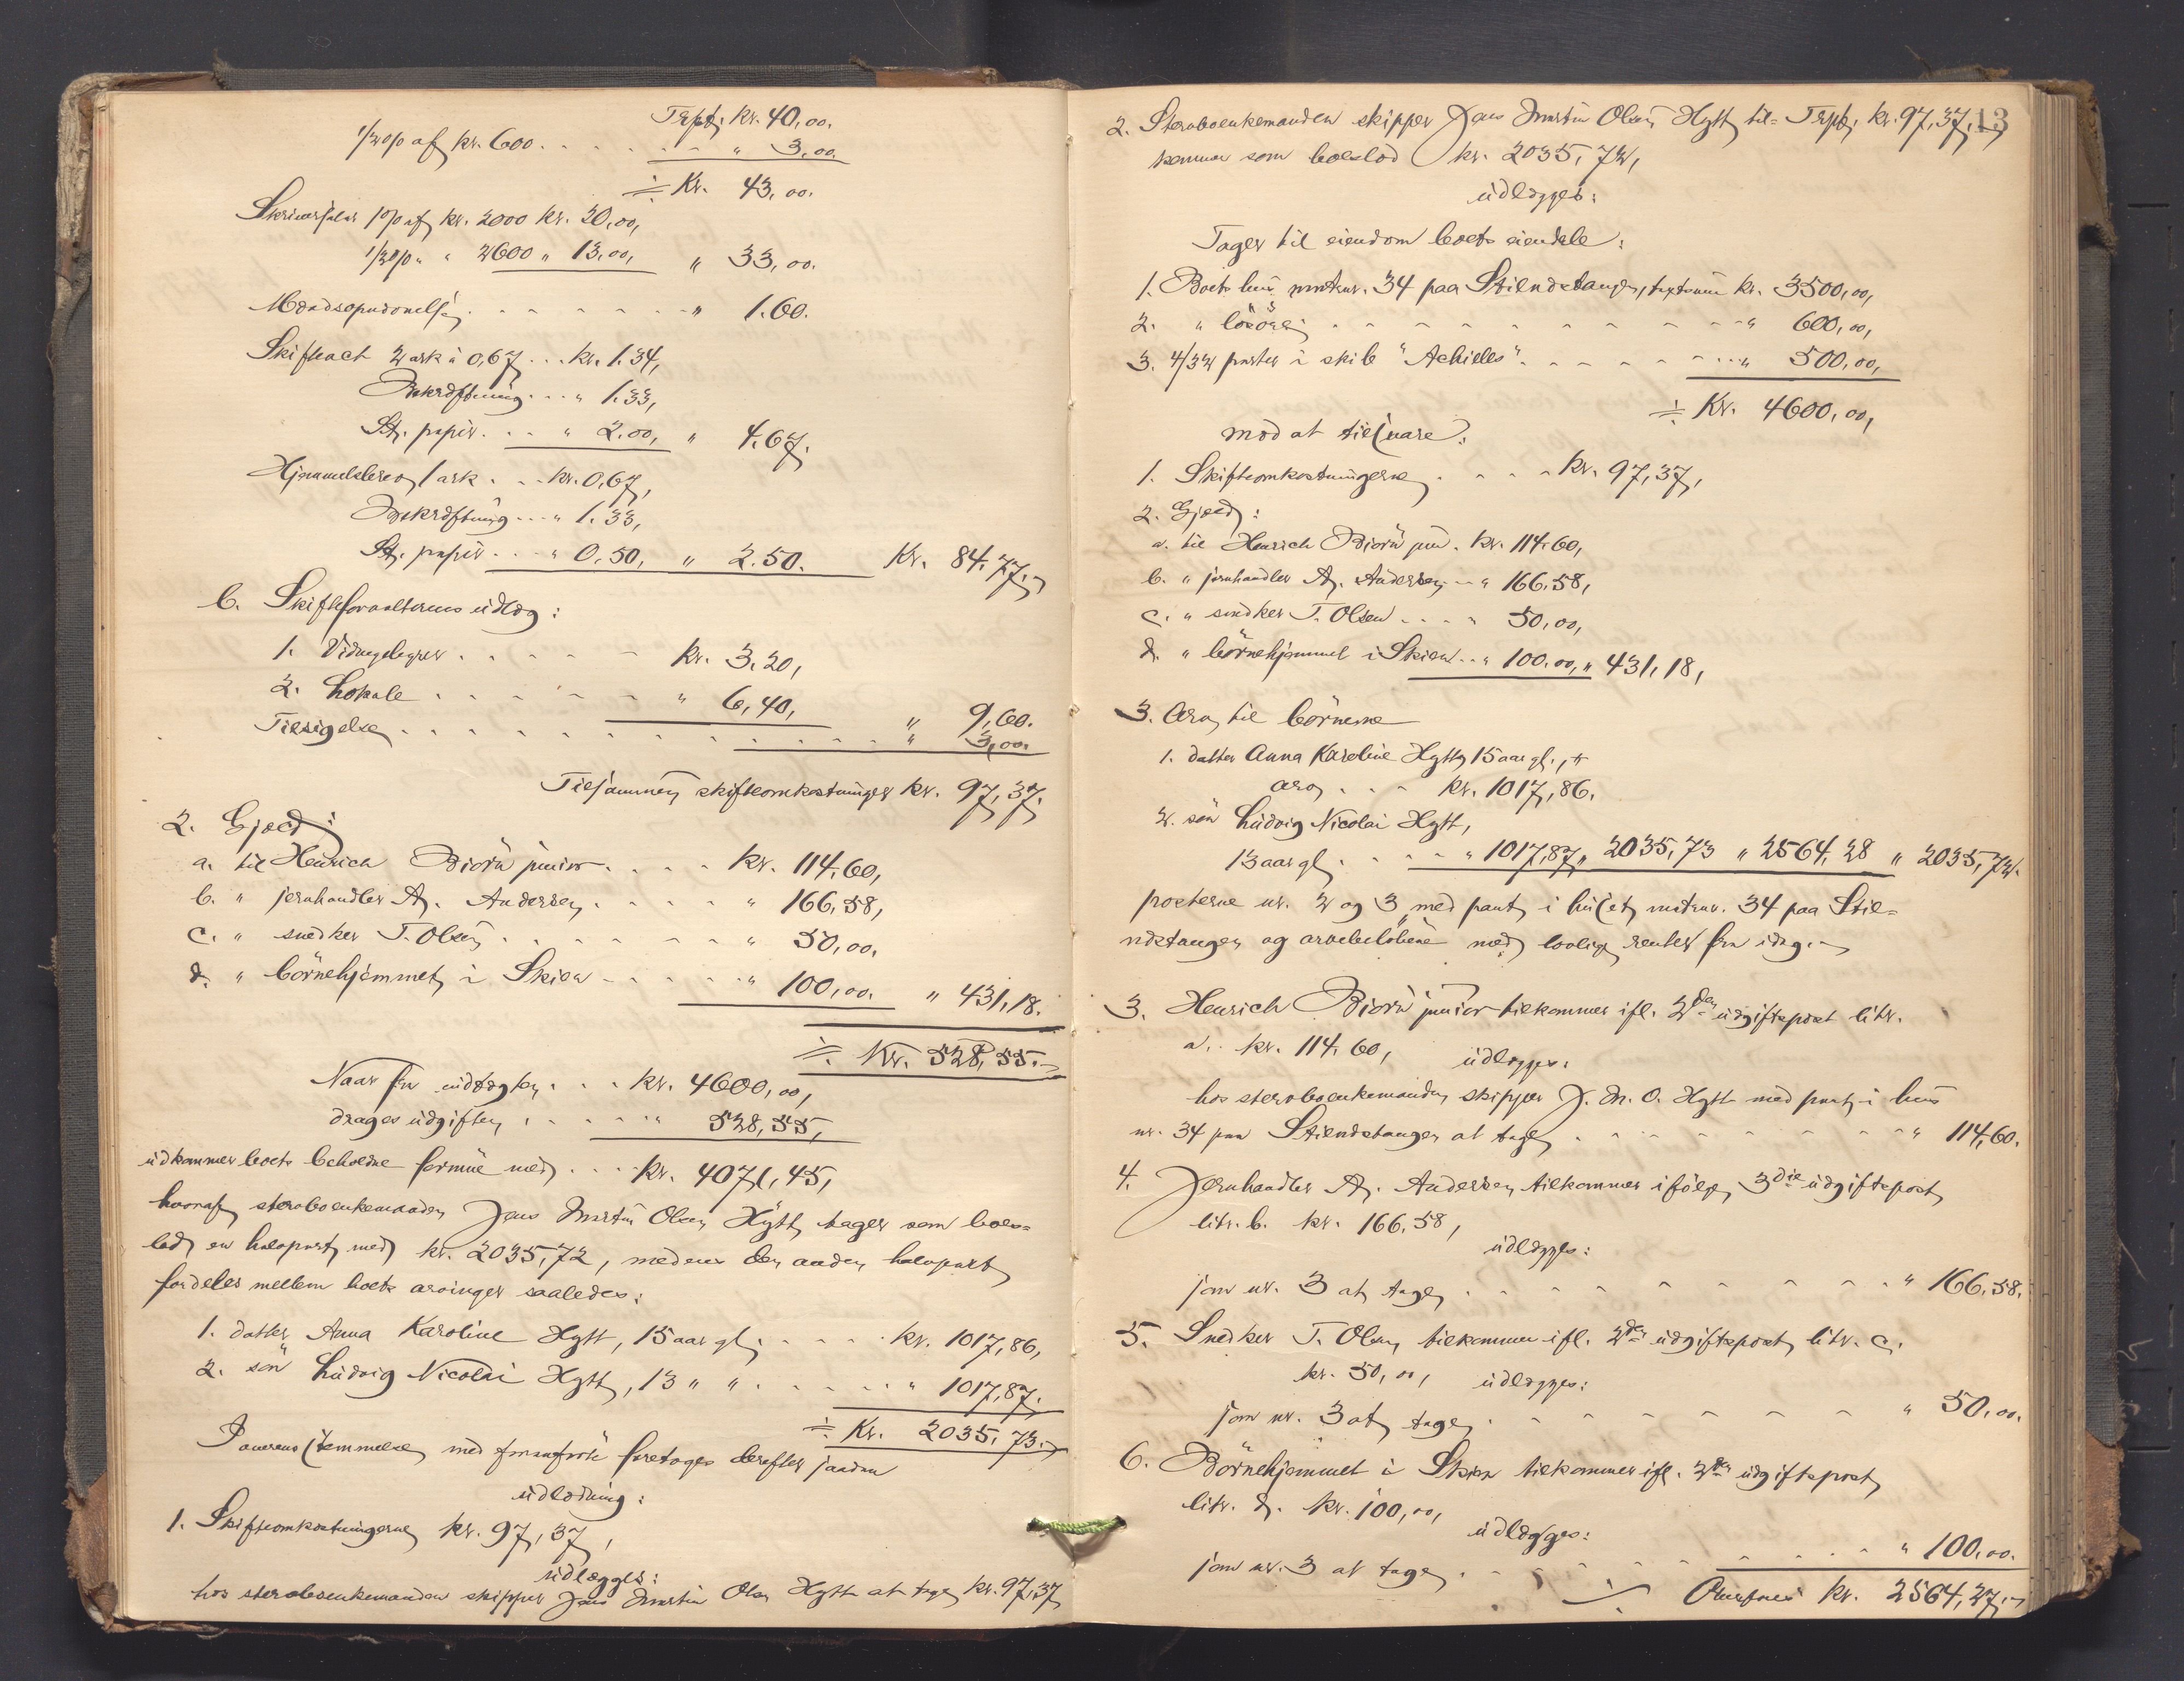 Trspt. kr. 40,00.
1/2 o/o af kr. 600 . . . . . . " 3,00.
÷ Kr. 43,00.
Skriversalær 1 o/o af kr. 2000 kr. 20,00,
1/2 o/o " " 2600 " 13,00, " 33,00.
. . . . . . . " 1.60.
Skifteact 2 ark à 0,67 . . . kr. 1.34,
Bekræftning . . . " 1.33,
St. papir . . . " 2.00, " 4.67.
Hjemmelsbrev 1 ark . . . kr. 0,67,
Bekræftning . . . " 1.33,
St. papir . . . " 0.50, " 2.50. Kr. 84.77.
b. Skifteforvalterens udlæg:
1. Vidnegebyrer . . . . . kr. 3.20,
2. Lokale . . . . . . " 6,40, " 9,60.
Tilsigelse . . . . . . . . . . . . " 3,00.
Tilsammen skifteomkostninger kr. 97,37.
2. Gjæld:
a. til Henrich Biørn junior . . . . kr. 114,60,
b. " jernhandler A. Andersen . . . . " 166,58,
c. " snedker T. Olsen . . . . . . " 50,00.
d. " börnehjemmet i Skien . . . . . " 100,00. " 431,18.
÷ Kr. 528,55.
Naar fra indtægten . . . kr. 4600,00,
drages udgiften . . . . . " 528,55,
udkommer boets beholdne formue med . . . kr. 4071,45,
hvoraf sterboenkemanden Jens Martin Olsen Hytt tager som boes-
lod en halvpart med kr. 2035,72, medens den anden halvpart
fordeles mellem boets arvinger saaledes:
1. datter Anna Karoline Hytt, 15 aar gl. . . . . kr. 1017,86,
2. sön Ludvig Nicolai Hytt, 13 " " . . . . . " 1017,87.
÷ Kr. 2035,73.
I overensstemmelse med foranförte foretoges derefter saadan
udlodning:
1. Skifteomkostningerne kr. 97,37,
udlægges:
hos sterboenkemanden skipper Jens Martin Olsen Hytt at tage kr. 97,37
13
2. Sterboenkemanden skipper Jens Martin Olsen Hytt til- Trspt. kr. 97,37.
kommer som boeslod kr. 2035,72,
udlægges:
Tager til eiendom boets eiendele:
1. Boets hus matrnr. 34 paa Stilndstangen, taxtsum kr. 3500,00,
2. " lösöre . . . . . . . . . . . " 600,00,
3. 4/32 parter i skib "Achilles" . . . . . . . " 500,00,
÷ Kr. 4600,00,
mod at tilsvare:
1. Skifteomkostningerne . . . . kr. 97,37,
2. Gjæld:
a. til Henrich Biørn jun. kr. 114.60,
b. " jernhandler A. Andersen . . " 166.58,
c. " snedker T. Olsen . . . . " 50,00,
d. " börnehjemmet i Skien . . " 100.00, " 431,18,
3. Arv til börnene
1. datter Anna Karoline Hytt 15 aar gl.,
arv . . . kr. 1017,86.
2. sön Ludvig Nicolai Hytt,
13 aar gl . . . . . " 1017,87, " 2035,73 " 2564,28 " 2035,72.
posterne nr. 2 og 3 med pant i huset matrnr. 34 paa Stil-
ndstangen og arvebelöbene med lovlige renter fra idag.
3. Henrich Biørn junior tilkommer ifl. 2den udgiftspost litr.
a. kr. 114.60, udlægges:
hos sterboenkemanden skipper J. M. O. Hytt med pant i hus
nr. 34 paa Stilndstangen at tage . . . . . . . . " 114,60.
4. Jernhandler A. Andersen tilkommer ifölge 3die udgiftspost
litr. b. kr. 166.58,
udlægges:
som nr. 3 at tage . . . . . . . . . . " 166.58.
5. Snedker T. Olsen tilkommer ifl. 2den udgiftspost litr. c.
kr. 50,00, udlægges:
som nr. 3 at tage . . . . . . . . . " 50.00.
6. Börnehjemmet i Skien tilkommer ifl. 2den udgiftspost
litr. d. kr. 100,00,
udlægges:
som nr. 3 at tage . . . . . . . . . " 100.00.
÷ Overföres kr. 2564,27.